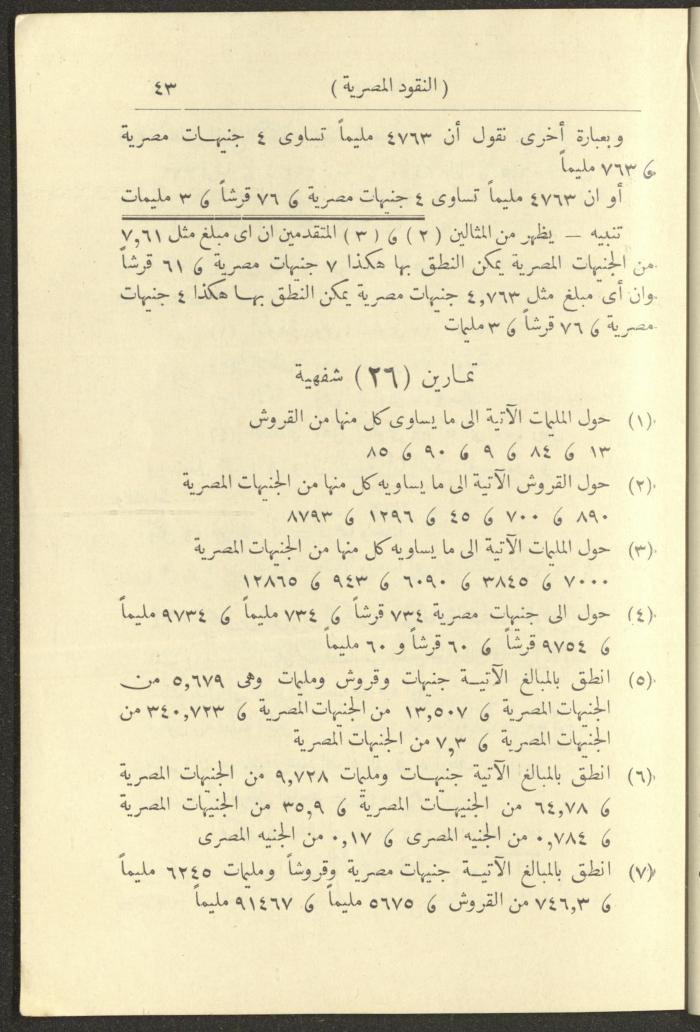 ( النقود المصرية ) ٤٣
وبعبارة أخرى نقول أن ٤٧٦٣ مليماً تساوى ٤ جنيهات مصرية
و ٧٦٣ مليماً
أو ان ٤٧٦٣ مليماً تساوى ٤ جنيهات مصرية و ٧٦ قرشاً و ٣ مليمات
تنبيه – يظهر من المثالين ( ٢ ) و ( ٣ ) المتقدمين ان اى مبلغ مثل ٧,٦١
من الجنيهات المصرية يمكن النطق بها هكذا ٧ جنيهات مصرية و ٦١ قرشاً
وان أى مبلغ مثل ٤,٧٦٣ جنيهات مصرية يمكن النطق بها هكذا ٤ جنيهات
مصرية و ٧٦ قرشاً و ٣ مليمات
تمارين (٢٦) شفهية
(١) حول المليمات الآتية الى ما يساوى كل منها من القروش
١٣ و ٨٤ و ٩ و ٩٠ و ٨٥
(٢) حول القروش الآتية الى ما يساويه كل منها من الجنيهات المصرية
٨٩٠ و ٧٠٠ و ٤٥ و ١٢٩٦ و ٨٧٩٣
(٣) حول المليمات الآتية الى ما يساويه كل منها من الجنيهات المصرية
٧٠٠٠ و ٣٨٤٥ و ٦٠٩٠ و ٩٤٣ و ١٢٨٦٥
(٤) حول الى جنيهات مصرية ٧٣٤ قرشاً و ٧٣٤ مليماً و ٩٧٣٤ مليماً
و ٩٧٥٤ قرشاً و ٦٠ قرشاً و ٦٠ مليماً
(٥) انطق بالمبالغ الآتية جنيهات وقروش ومليمات وهى ٥,٦٧٩ من
الجنيهات المصرية و ١٣,٥٠٧ من الجنيهات المصرية و ٣٤٠,٧٢٣ من
الجنيهات المصرية و ٧,٣ من الجنيهات المصرية
(٦) انطق بالمبالغ الآتية جنيهات ومليمات ٩,٧٢٨ من الجنيهات المصرية
و ٦٤,٧٨ من الجنيهات المصرية و ٣٥,٩ من الجنيهات المصرية
و ٠,٧٨٤ من الجنيه المصرى و ٠,١٧ من الجنيه المصرى
(٧) انطق بالمبالغ الآتية جنيهات مصرية وقروشاً ومليمات ٦٢٤٥ مليماً
و ٧٤٦,٣ من القروش و ٥٦٧٥ مليماً و ٩١٤٦٧ مليماً